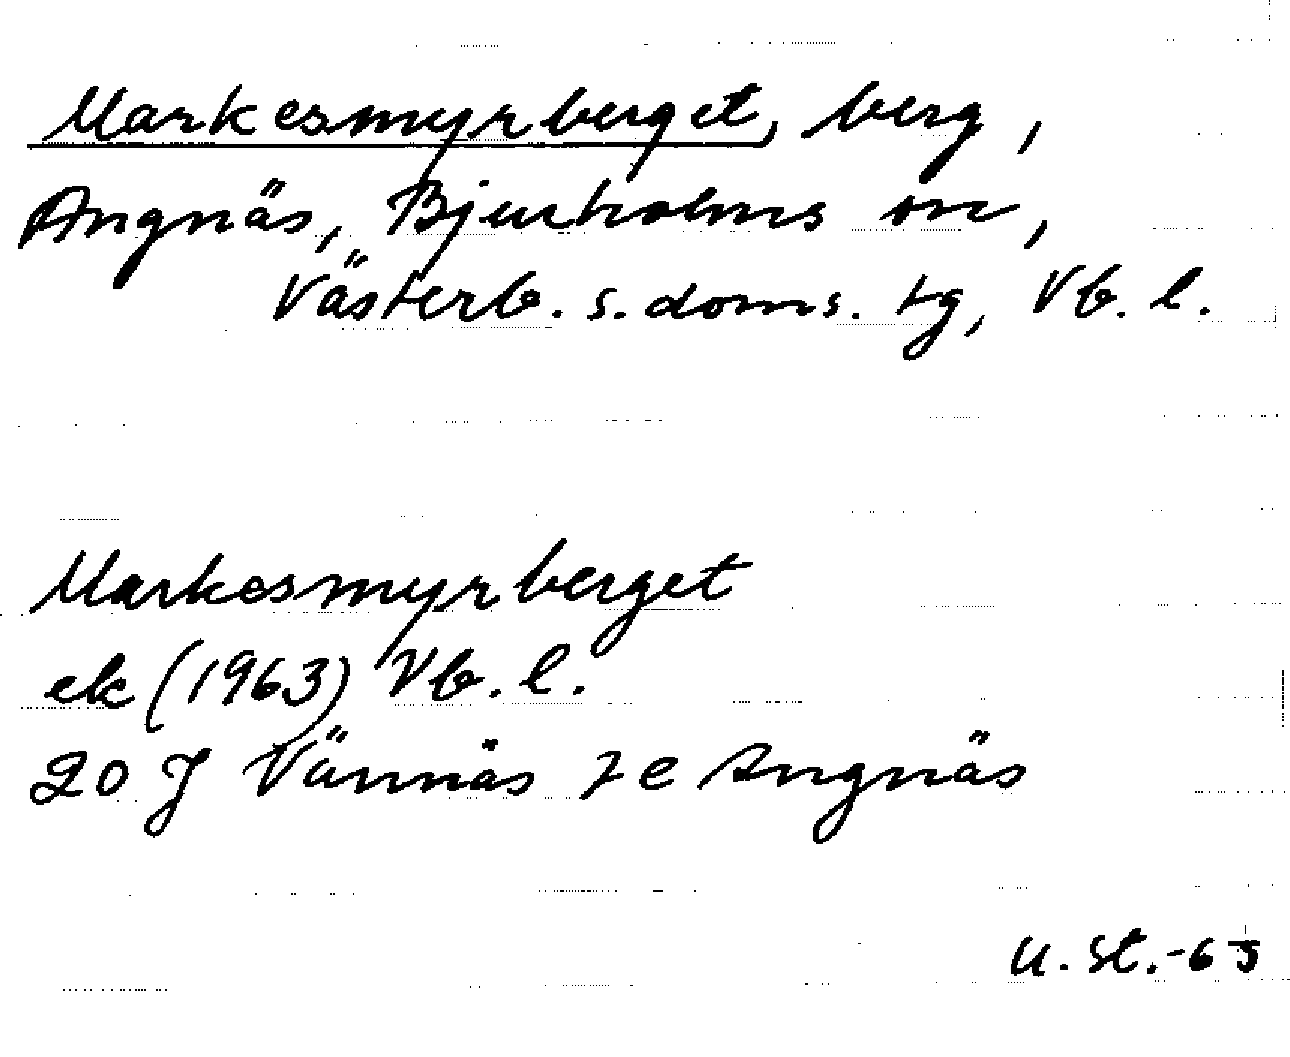 Markesmyrberget, berg,
Angnäs, Bjurholms sn,
Västerb. s. doms. tg, Vb. l.
Markesmyrberget
ek (1963) Vb. l.
20 J Vännäs 7 e Angnäs
U. St. -65